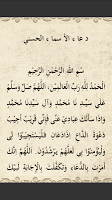 دعاء الأسماء الحسنى
بِسْمِ اللهِ الرَّحْمَنِ الرَّحِيْمِ
الْحَمْدُ لِلَّهِ رَبِّ الْعَالَمِيْنَ، اَللَّهُمَّ صَلِّ وَسَلِّمْ
عَلَى سَيِّدِنَا مُحَمَّدٍ وَآلِ سَيِّدِنَا مُحَمَّدٍ
وَإِذَا سَأَلَكَ عِبَادِيْ عَنِّيْ فَإِنِّيْ قَرِيْبٌ، أُجِيْبُ
دَعْوَةَ الدَّاعِ إِذَا دَعَانِ فَلْيَسْتَجِيْبُوْا لِيْ
وَلْيُؤْمِنُوْا بِيْ لَعَلَّهُمْ يَرْشُدُوْنَ. اَللَّهُمَّ إِنَّكَ
أَمَرْتَ بِالدُّعَاءِ وَتَكَفَّلْتَ بِالْإِجَابَةِ لَبَّيْكَ